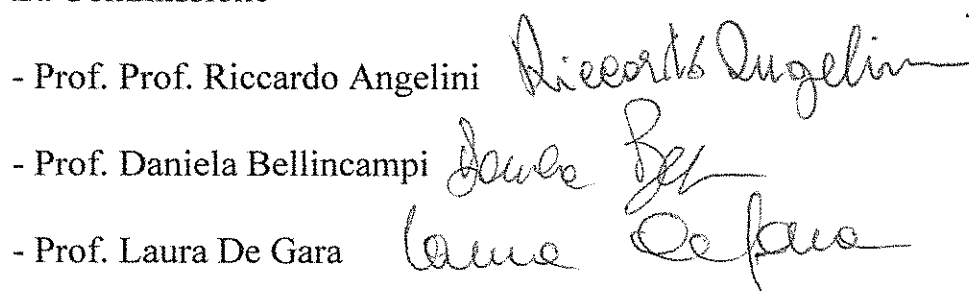 - Prof. Prof. Riccardo Angelini Riccardo Angelini
- Prof. Daniela Bellincampi
- Prof. Laura De Gara Laura De Gara